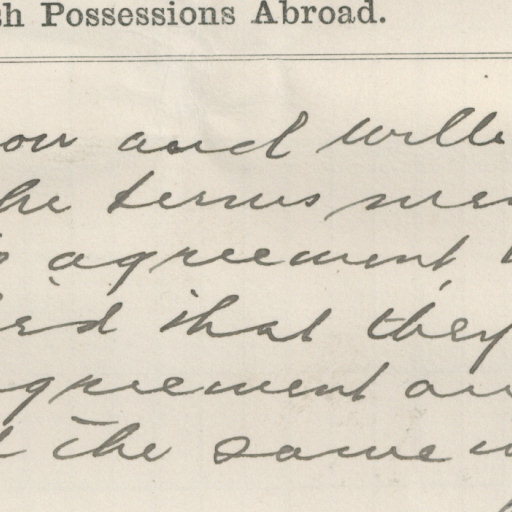 sh Possessions Abroad.
ow and will
he terms men
agreement
rd that they
agreement an
the same